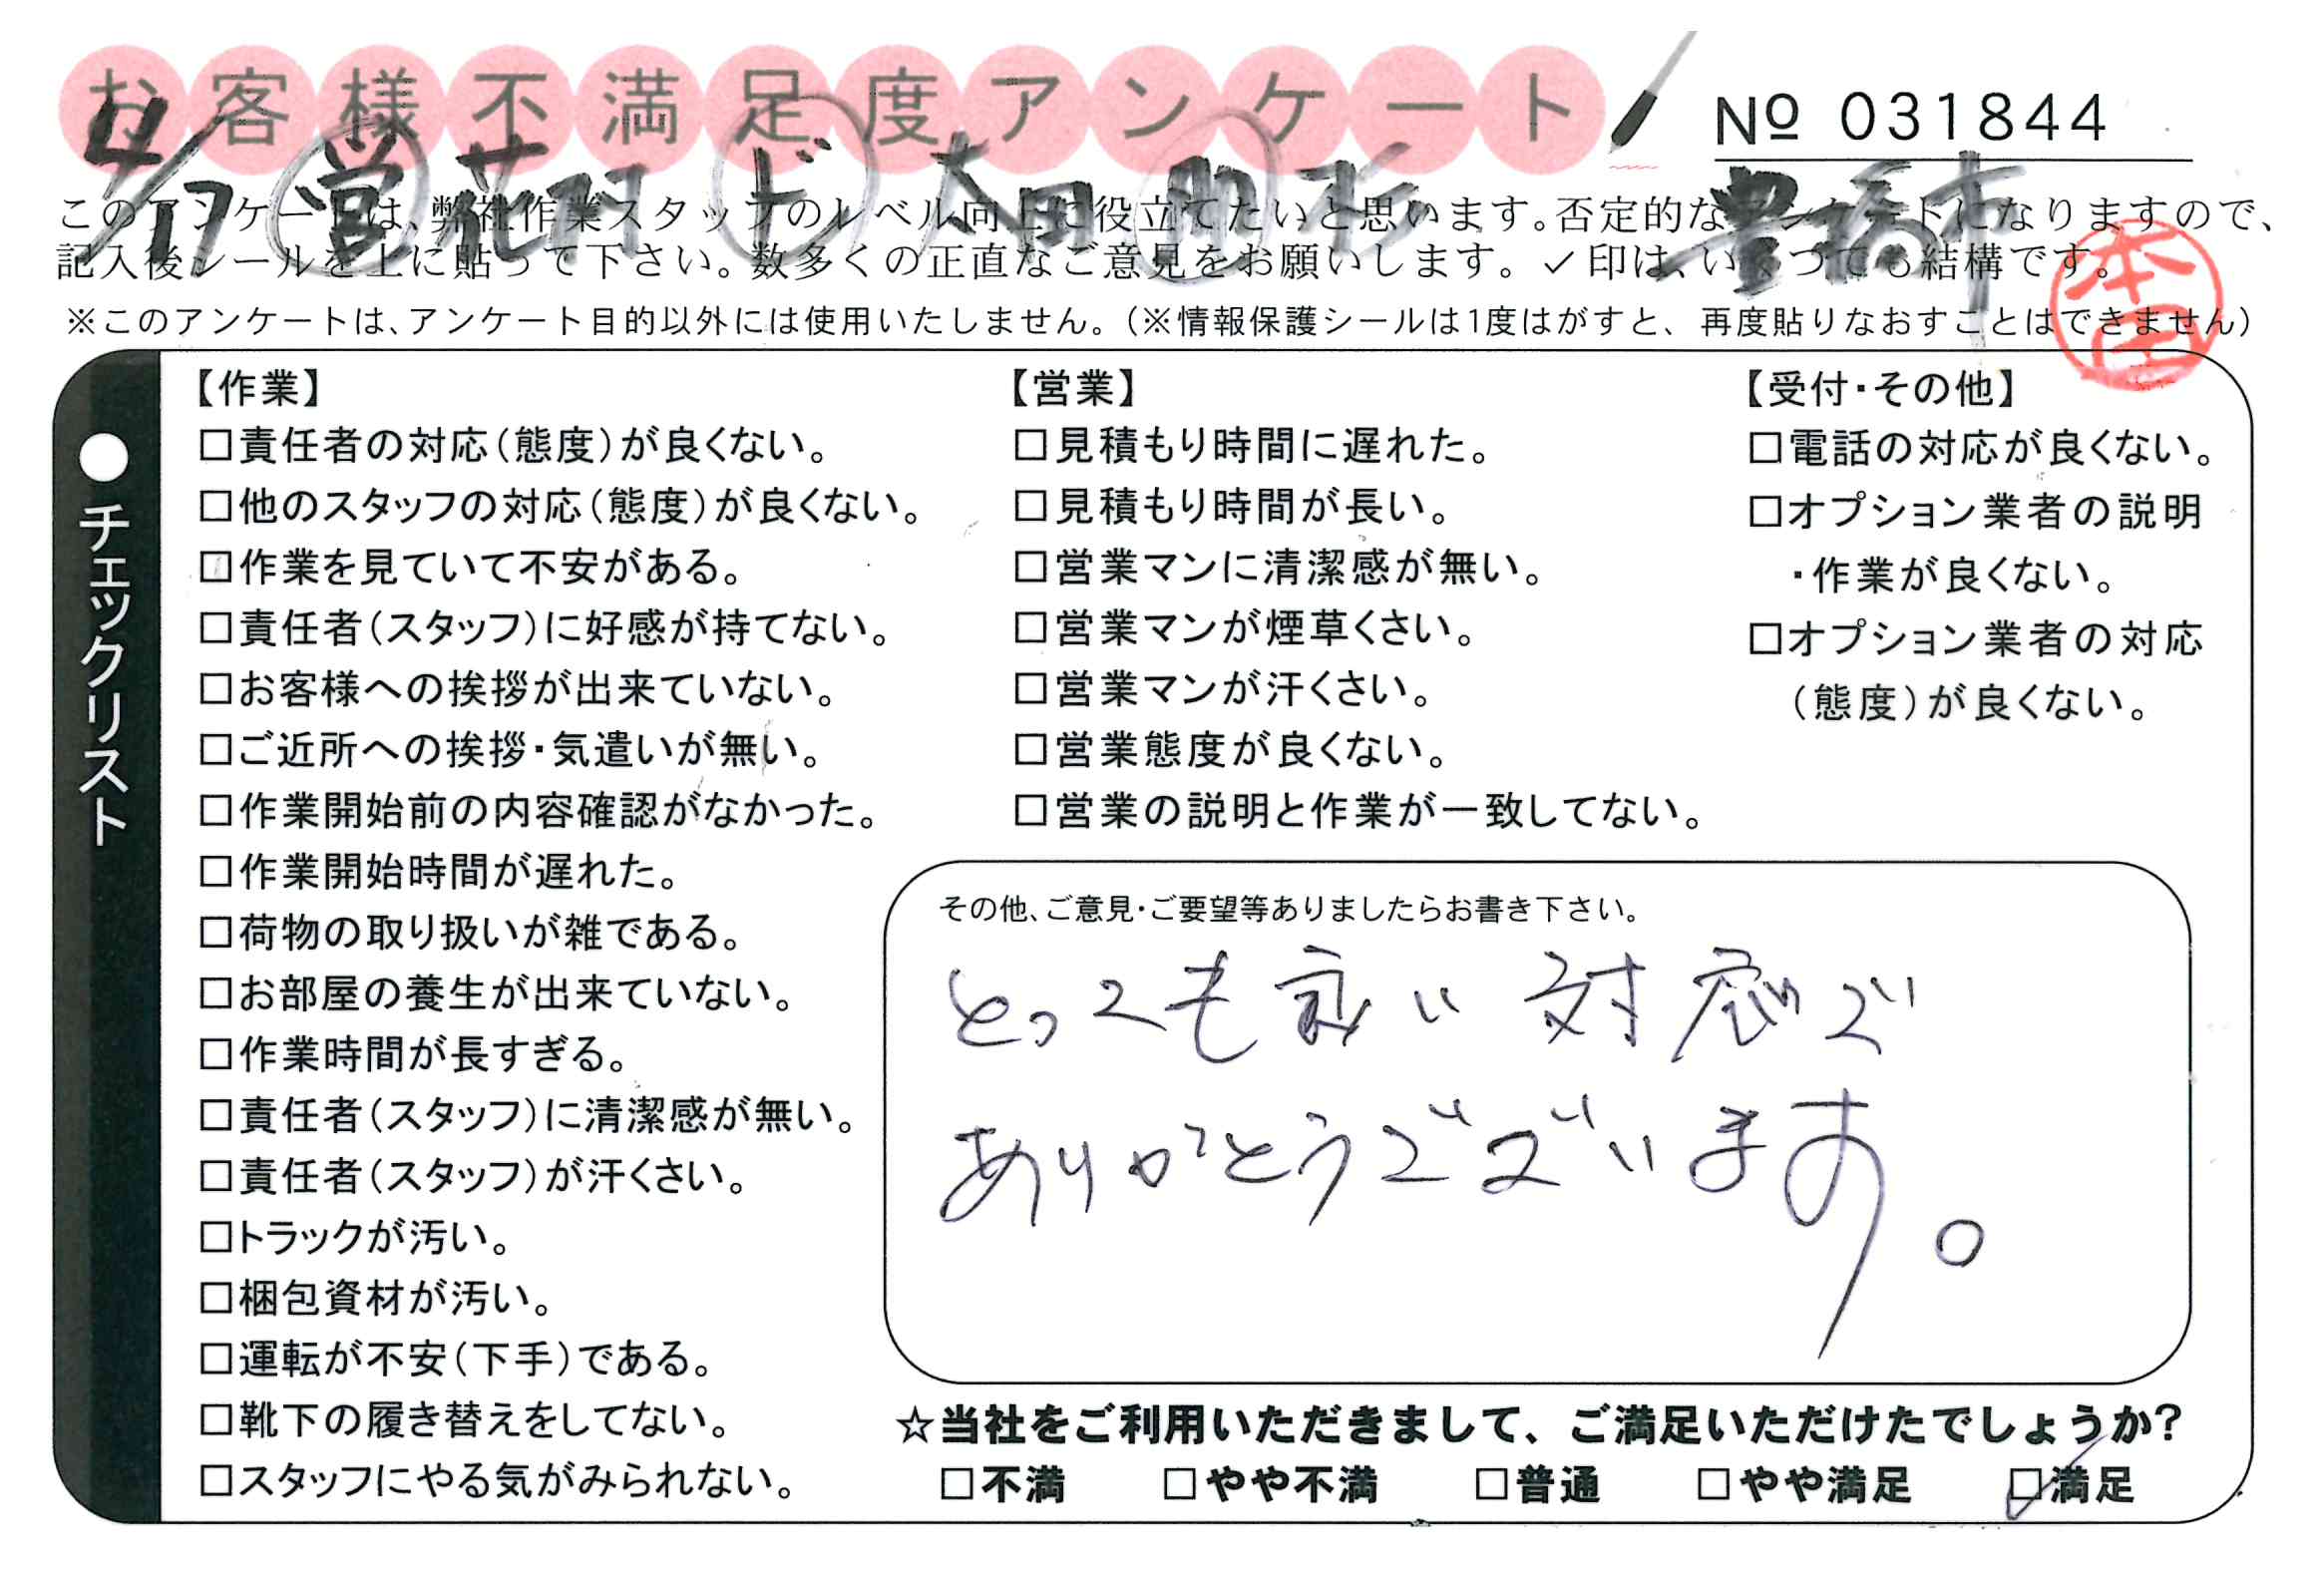 お客様不満足度アンケート
№ 031844
4/17 営 花村 ド 太田 助 杉 豊橋市
このアンケートは、弊社作業スタッフのレベル向上に役立てたいと思います。否定的なアンケートになりますので、
記入後シールを上に貼って下さい。数多くの正直なご意見をお願いします。✓印は、いくつでも結構です。
※このアンケートは、アンケート目的以外には使用いたしません。(※情報保護シールは1度はがすと、再度貼りなおすことはできません)
本田
●チェックリスト
【作業】
□責任者の対応(態度)が良くない。
□他のスタッフの対応(態度)が良くない。
□作業を見ていて不安がある。
□責任者(スタッフ)に好感が持てない。
□お客様への挨拶が出来ていない。
□ご近所への挨拶・気遣いが無い。
□作業開始前の内容確認がなかった。
□作業開始時間が遅れた。
□荷物の取り扱いが雑である。
□お部屋の養生が出来ていない。
□作業時間が長すぎる。
□責任者(スタッフ)に清潔感が無い。
□責任者(スタッフ)が汗くさい。
□トラックが汚い。
□梱包資材が汚い。
□運転が不安(下手)である。
□靴下の履き替えをしてない。
□スタッフにやる気がみられない。
【営業】
□見積もり時間に遅れた。
□見積もり時間が長い。
□営業マンに清潔感が無い。
□営業マンが煙草くさい。
□営業マンが汗くさい。
□営業態度が良くない。
□営業の説明と作業が一致してない。
【受付・その他】
□電話の対応が良くない。
□オプション業者の説明
・作業が良くない。
□オプション業者の対応
(態度)が良くない。
その他、ご意見・ご要望等ありましたらお書き下さい。
とっても良い対応で
ありがとうございます。
☆当社をご利用いただきまして、ご満足いただけたでしょうか?
□不満 □やや不満 □普通 □やや満足 ☑満足